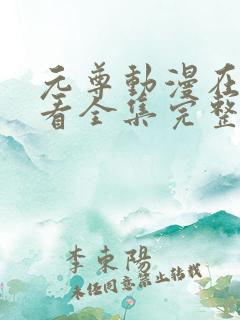 元尊動漫在
看全集完整
李東陽
未经同意禁止转载